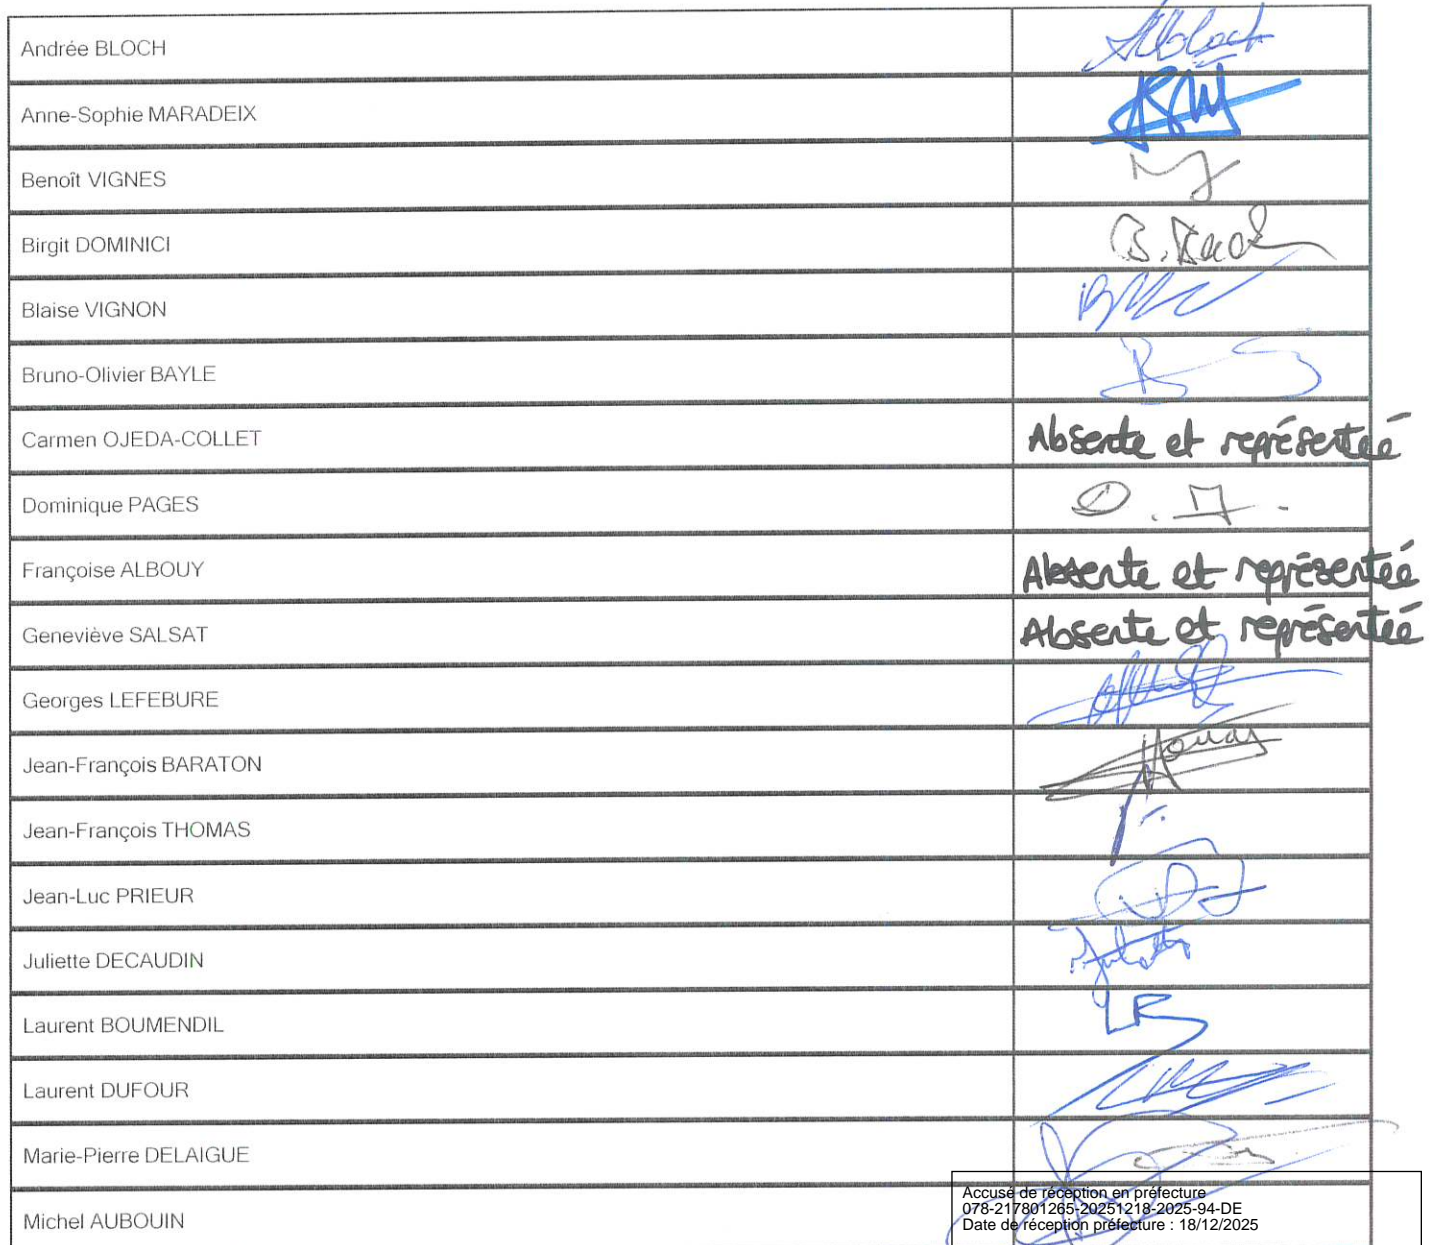 Andrée BLOCH
Anne-Sophie MARADEIX
Benoît VIGNES
Birgit DOMINICI
Blaise VIGNON
Bruno-Olivier BAYLE
Carmen OJEDA-COLLET Absente et représenteé
Dominique PAGES
Françoise ALBOUY Absente et représenteé
Geneviève SALSAT Absente et représenteé
Georges LEFEBURE
Jean-François BARATON
Jean-François THOMAS
Jean-Luc PRIEUR
Juliette DECAUDIN
Laurent BOUMENDIL
Laurent DUFOUR
Marie-Pierre DELAIGUE
Michel AUBOUIN
Accusé de réception en préfecture
078-217801265-20251218-2025-94-DE
Date de réception préfecture : 18/12/2025